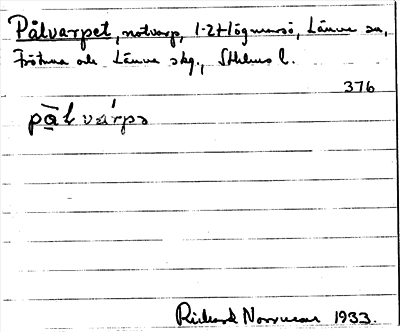 Pålvarpet, notvarp, 1-2 Högmarsö, Länna sn,
Frötuna och Länna skg., Sthlms l.
376
pålvárps
Rickard Norrman 1933.